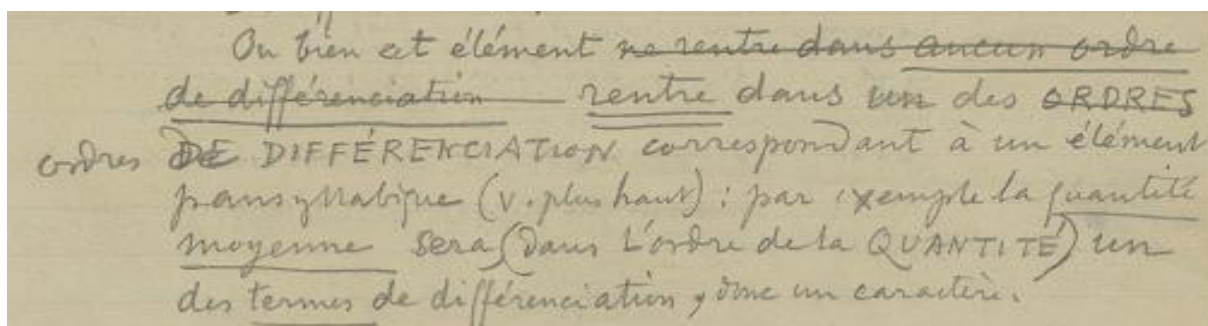 Ou bien cet élément ne rentre dans aucun ordre
de différenciation rentre dans un des ORDRES
ordres DE DIFFÉRENCIATION correspondant à un élément
pansyllabique (v. plus haut) : par exemple la quantité
moyenne sera (dans l'ordre de la QUANTITÉ) un
des termes de différenciation, donc un caractère.